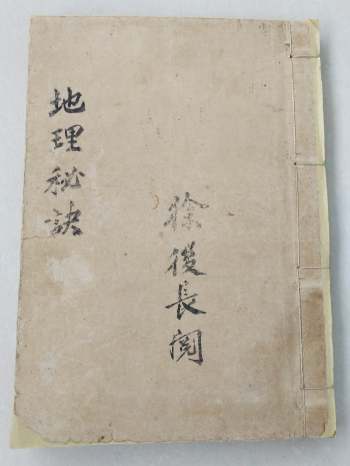 徐後長閱
地理秘訣